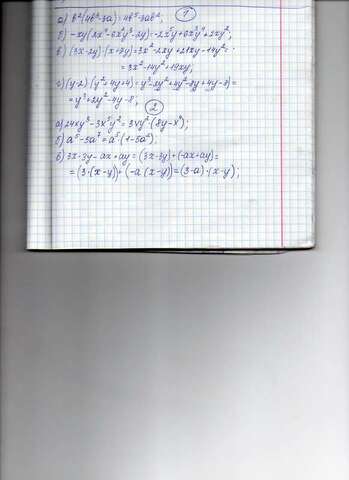 ①
а) b²(4b³-3a)=4b⁵-3ab²;
б) -xy(2x⁴-6x²y³-2y)=-2x⁵y+6x³y⁴+2xy²;
в) (3x-2y)·(x+7y)=3x²-2xy+21xy-14y²=
=3x²-14y²+19xy;
г) (y-2)(y²+4y+4)=y³-2y²+4y²-8y+4y-8=
=y³+2y²-4y-8;
②
а) 24xy³-3x⁵y²=3xy²(8y-x⁴);
б) a⁵-5a⁷=a⁵(1-5a²);
в) 3x-3y-ax+ay=(3x-3y)+(-ax+ay)=
=(3·(x-y))+(-a(x-y))=(3-a)·(x-y);